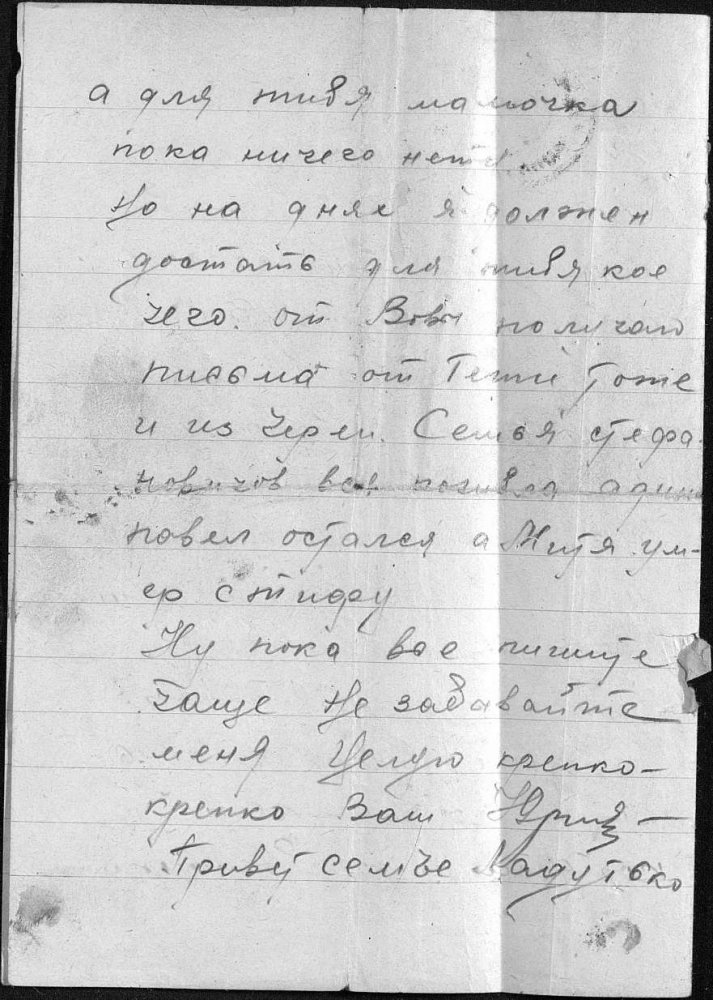 а для тибя мамочка
пока ничего нету
Но на днях я должен
достать для тибя кое
чего. от Вовы получаю
письма от Тети тоже
и из Череи. Семья стефа-
новичов вся погибла адин
павел остался а Митя ум-
ер с тифу
Ну пока все пишите
чаще Не забавайте
меня Целую крепко-
крепко Ваш Юрий
Привет семье